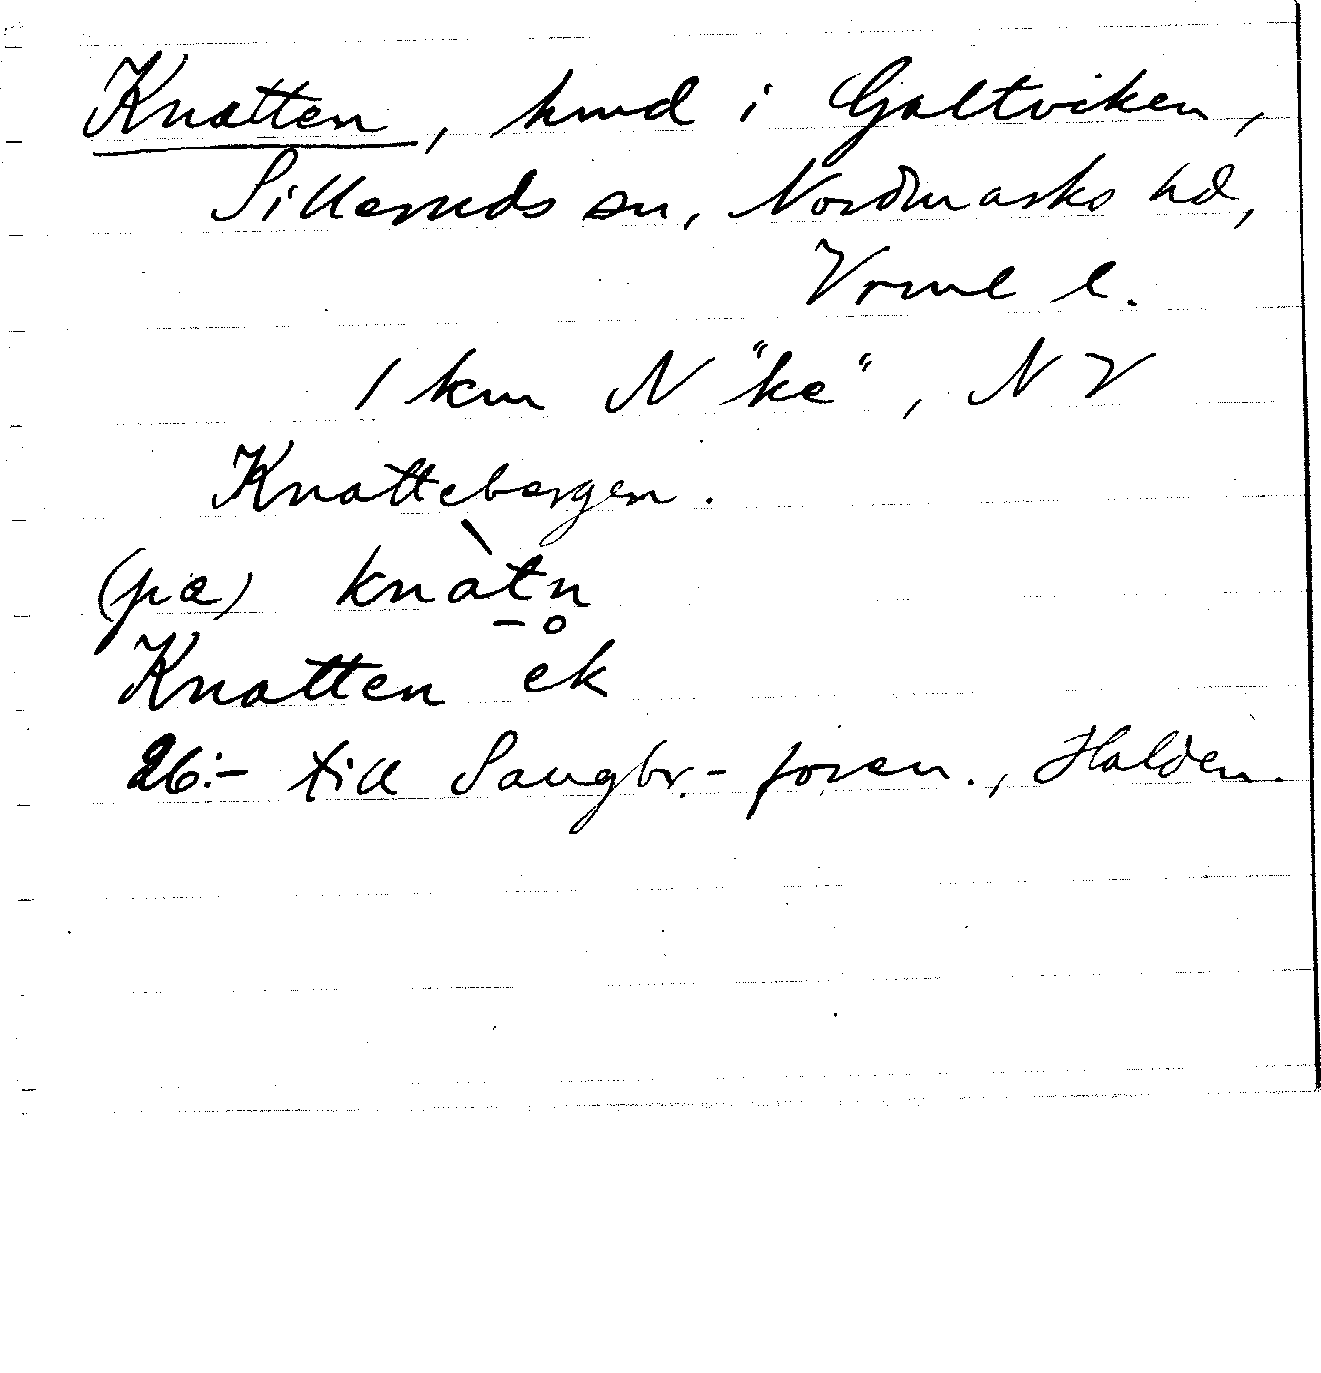 Knatten, hmd i Galtviken,
Silleruds sn, Nordmarks hd,
Vrml l.
1 km N "ke", NV
Knattebergen.
(pa) knàtn̥
Knatten ek
26:- till Saugbr.-foren., Halden.